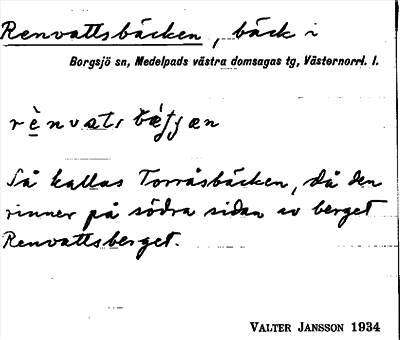 Renvattsbäcken, bäck i
Borgsjö sn, Medelpads västra domsagas tg, Västernorrl. l.
Så kallas Torråsbäcken, då den
rinner på södra sidan av berget
Renvattsberget.
VALTER JANSSON 1934